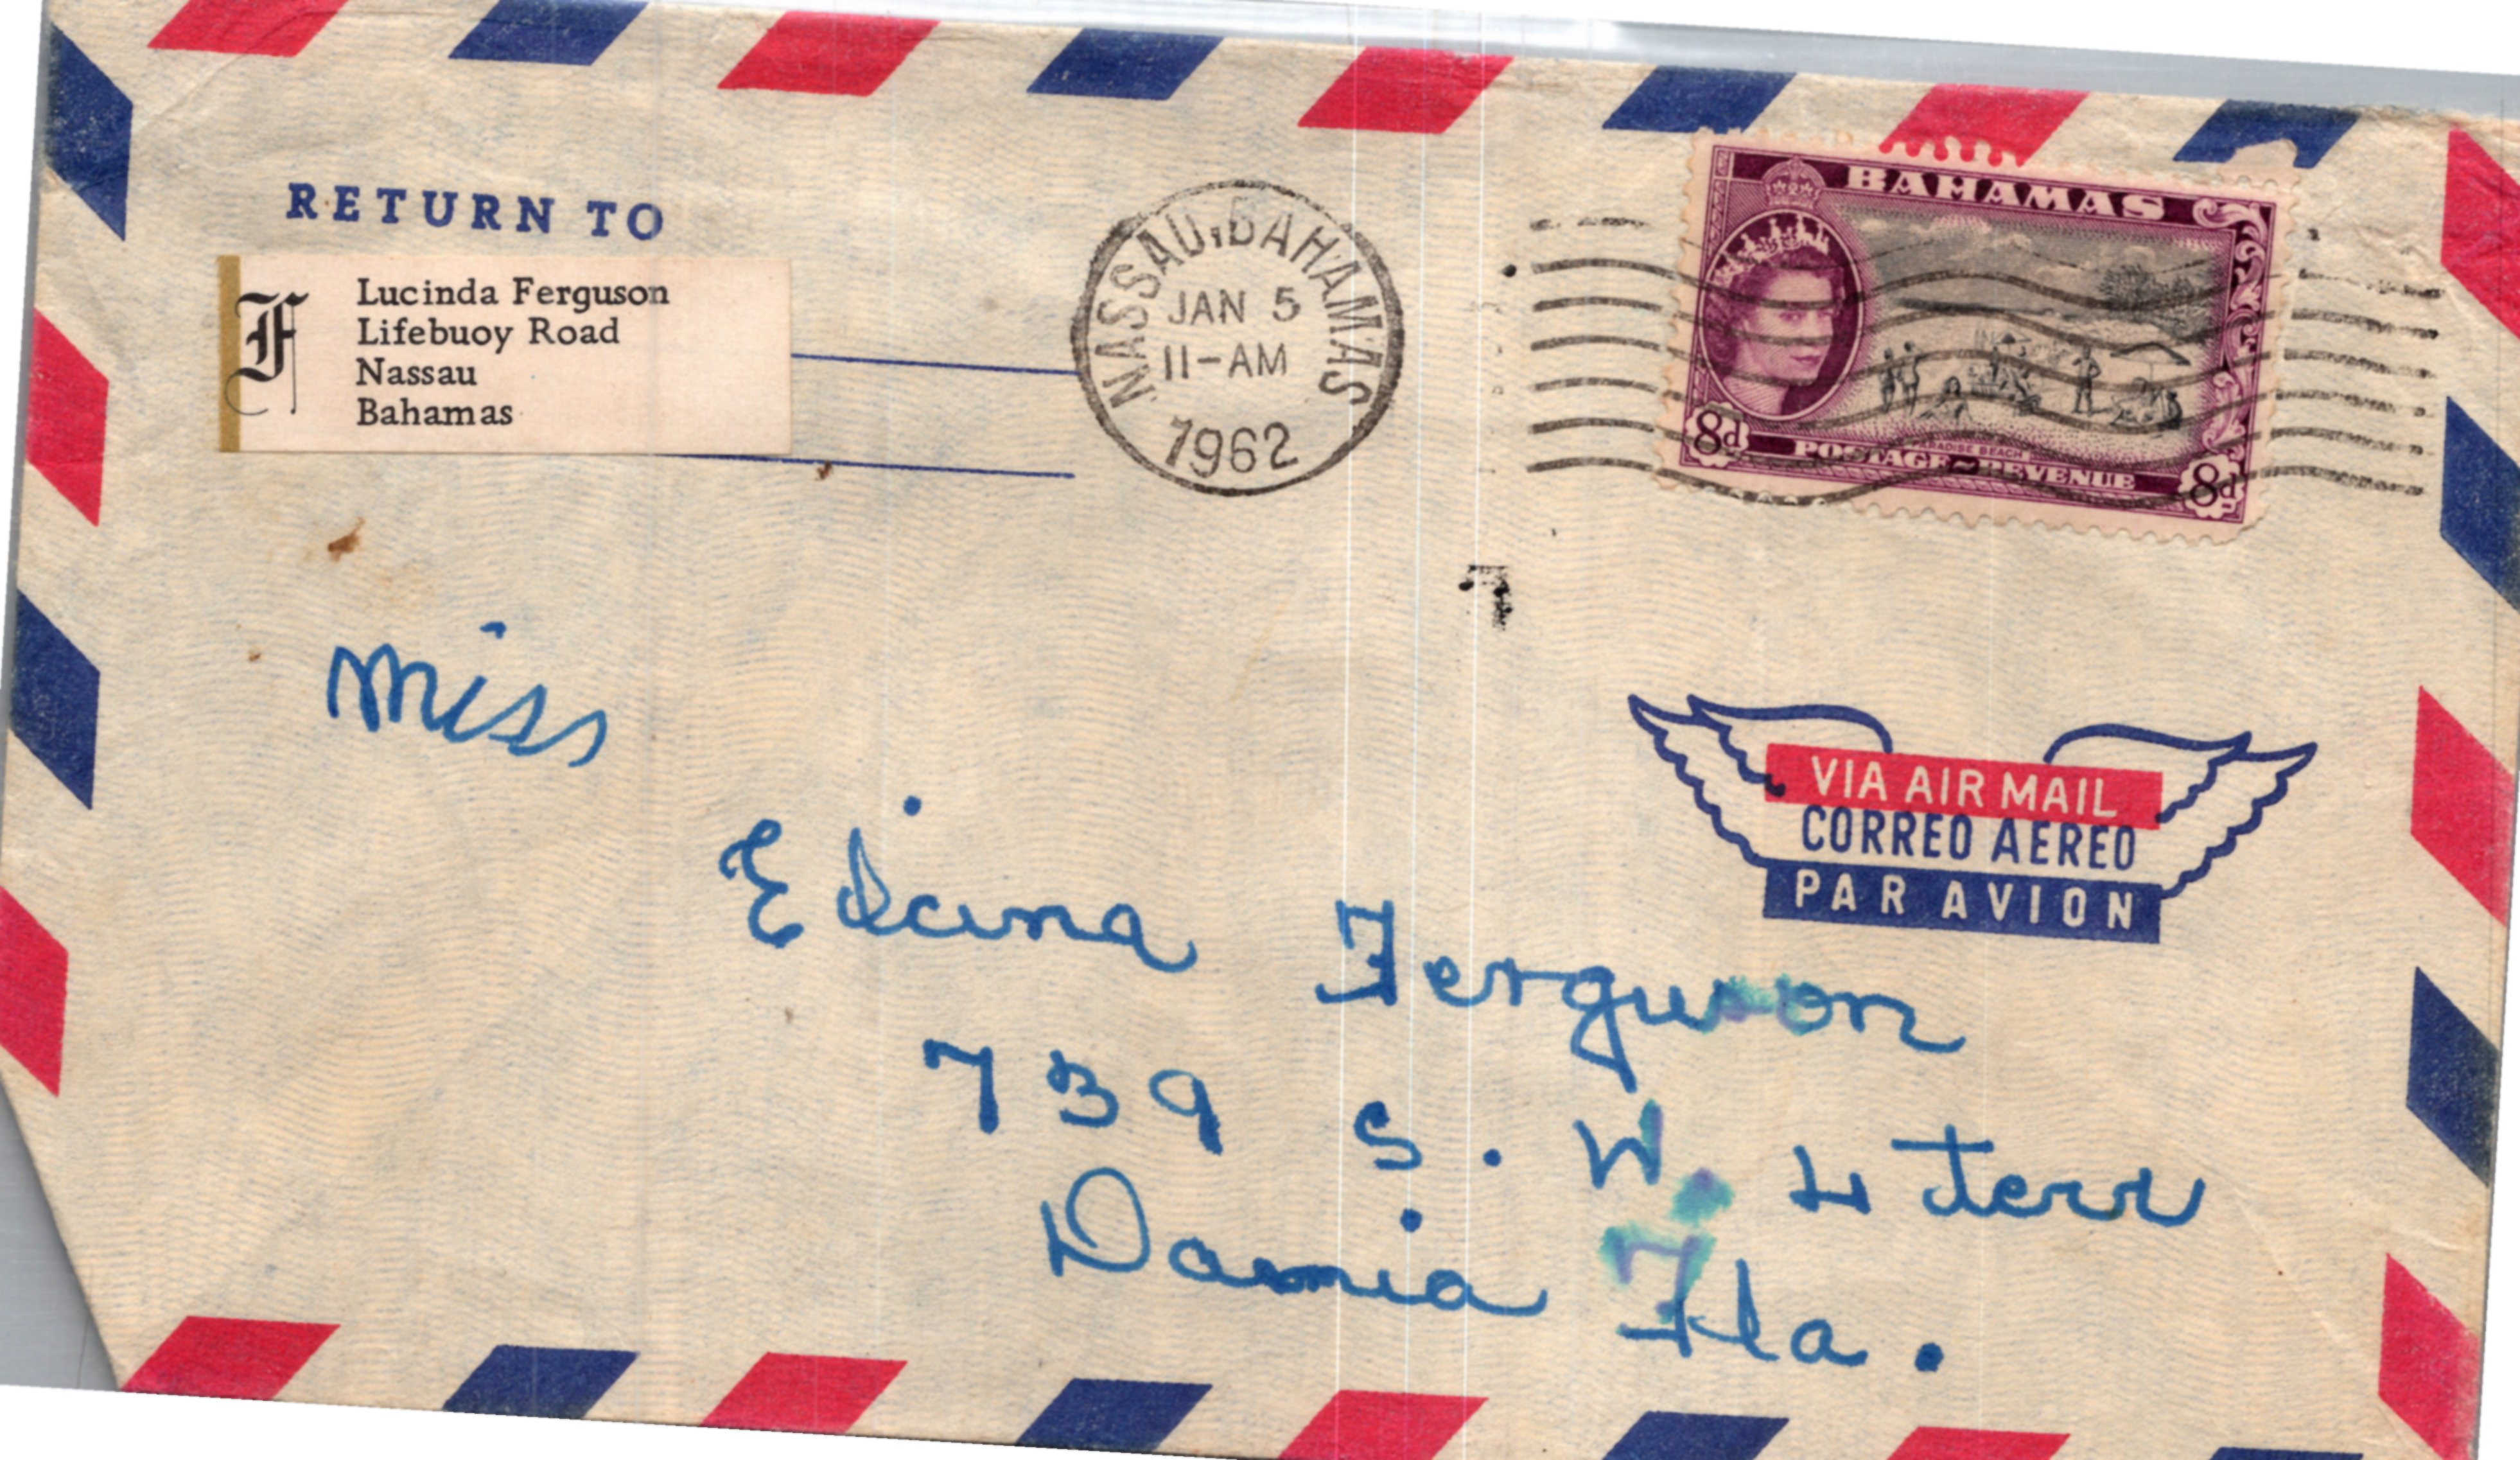 RETURN TO
Lucinda Ferguson
Lifebuoy Road
Nassau
Bahamas
F
NASSAU, BAHAMAS
JAN 5
11-AM
1962
BAHAMAS
8d
POSTAGE ~ REVENUE
8d
Miss
Ferguson
739 S. W. 4 Terr
Dania Fla.
VIA AIR MAIL
CORREO AEREO
PAR AVION